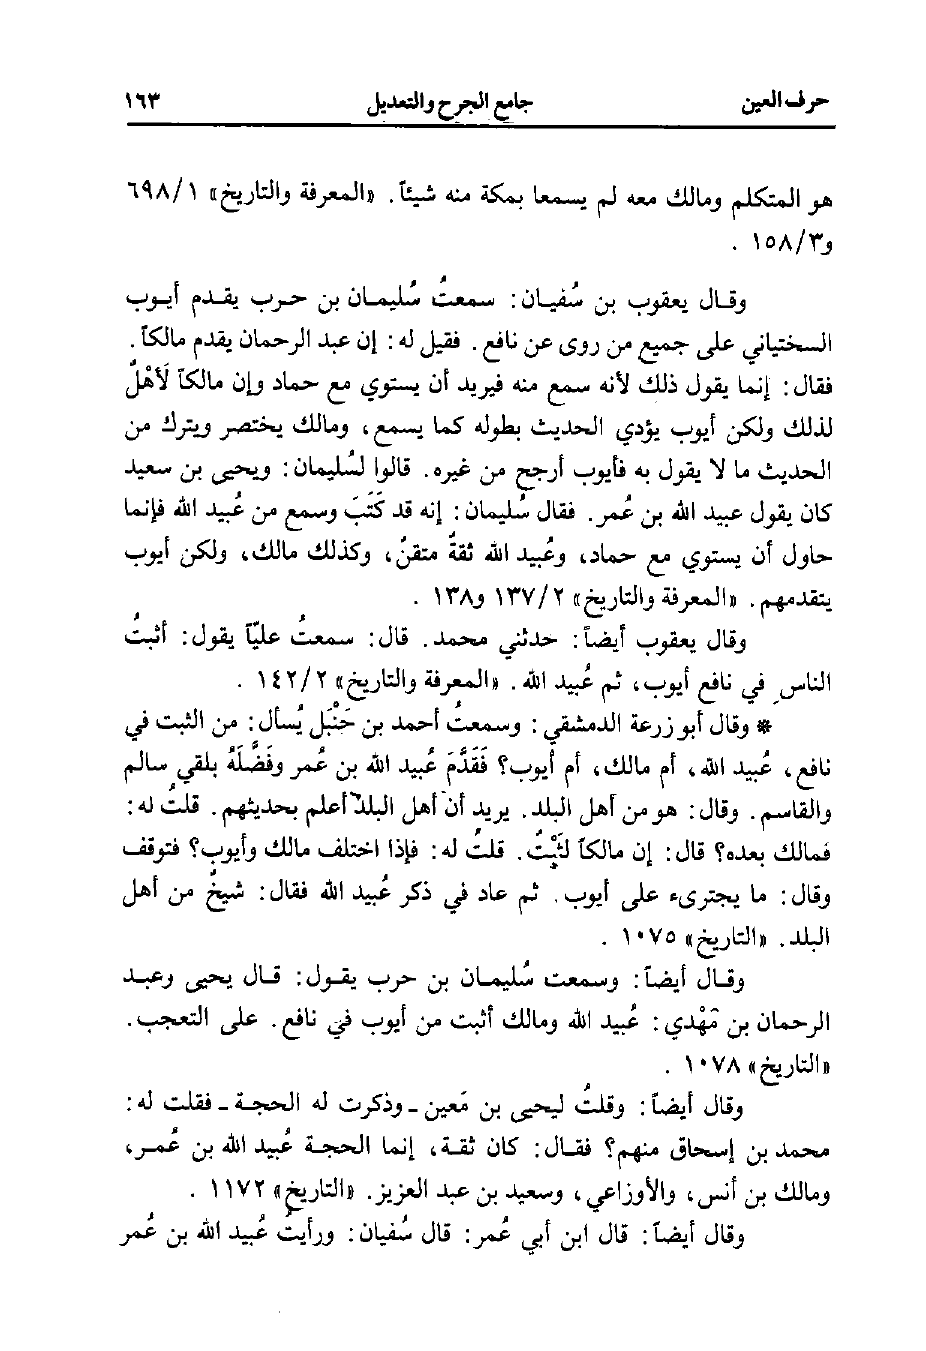 حرف العين جامع الجرح والتعديل ١٦٣
هو المتكلم ومالك معه لم يسمعا بمكة منه شيئاً. «المعرفة والتاريخ» ٦٩٨/١
و١٥٨/٣ .
وقال يعقوب بن سُفيان: سمعتُ سُليمان بن حرب يقدم أيوب
السختياني على جميع من روى عن نافع. فقيل له: إن عبد الرحمان يقدم مالكاً.
فقال: إنما يقول ذلك لأنه سمع منه فيريد أن يستوي مع حماد وإن مالكاً لَأهْلٌ
لذلك ولكن أيوب يؤدي الحديث بطوله كما يسمع، ومالك يختصر ويترك من
الحديث ما لا يقول به فأيوب أرجح من غيره. قالوا لسُليمان: ويحيى بن سعيد
كان يقول عبيد الله بن عُمر. فقال سُليمان: إنه قد كَتَبَ وسمع من عُبيد الله فإنما
حاول أن يستوي مع حماد، وعُبيد الله ثقةٌ متقنٌ، وكذلك مالك، ولكن أيوب
يتقدمهم. «المعرفة والتاريخ» ١٣٧/٢ و١٣٨ .
وقال يعقوب أيضاً: حدثني محمد. قال: سمعتُ عليّاً يقول: أثبتُ
الناسِ في نافع أيوب، ثم عُبيد الله. «المعرفة والتاريخ» ١٤٢/٢ .
* وقال أبو زرعة الدمشقي: وسمعتُ أحمد بن حَنْبَل يُسأل: من الثبت في
نافع، عُبيد الله، أم مالك، أم أيوب؟ فَقَدَّمَ عُبيد الله بن عُمر وفَضَّلَهُ بلقي سالم
والقاسم. وقال: هو من أهل البلد. يريد أن أهل البلد أعلم بحديثهم. قلتُ له:
فمالك بعده؟ قال: إن مالكاً لثَبْتٌ. قلتُ له: فإذا اختلف مالك وأيوب؟ فتوقف
وقال: ما يجترىء على أيوب. ثم عاد في ذكر عُبيد الله فقال: شيخٌ من أهل
البلد. «التاريخ» ١٠٧٥ .
وقال أيضاً: وسمعت سُليمان بن حرب يقول: قال يحيى وعبد
الرحمان بن مَهْدي: عُبيد الله ومالك أثبت من أيوب في نافع. على التعجب.
«التاريخ» ١٠٧٨ .
وقال أيضاً: وقلتُ ليحيى بن مَعين ـ وذكرت له الحجة ـ فقلت له:
محمد بن إسحاق منهم؟ فقال: كان ثقة، إنما الحجة عُبيد الله بن عُمر،
ومالك بن أنس، والأوزاعي، وسعيد بن عبد العزيز. «التاريخ» ١١٧٢ .
وقال أيضاً: قال ابن أبي عُمر: قال سُفيان: ورأيتُ عُبيد الله بن عُمر